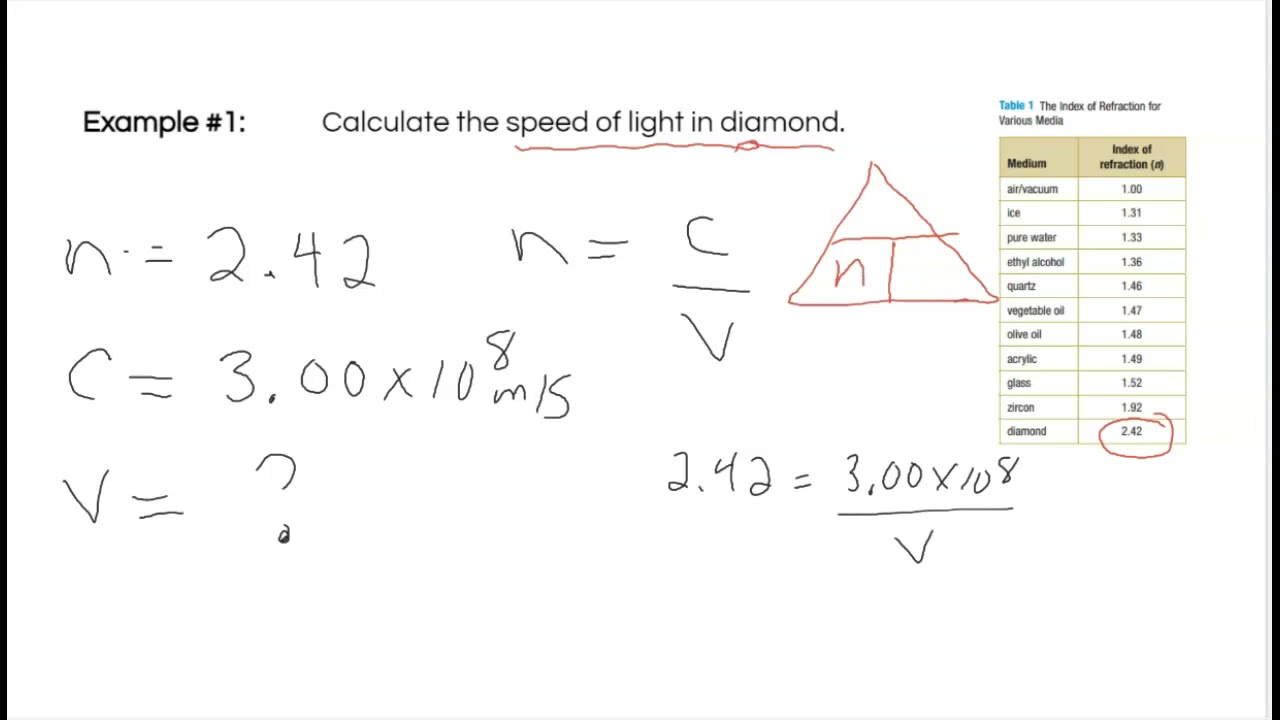 Example #1: Calculate the speed of light in diamond.
n = 2.42
n = c
v
c = 3.00 x 10 8 m/s
v = ?
n
2.42 = 3.00 x 10 8
v
Table 1 The Index of Refraction for
Various Media
Medium Index of
refraction (n)
air/vacuum 1.00
ice 1.31
pure water 1.33
ethyl alcohol 1.36
quartz 1.46
vegetable oil 1.47
olive oil 1.48
acrylic 1.49
glass 1.52
zircon 1.92
diamond 2.42